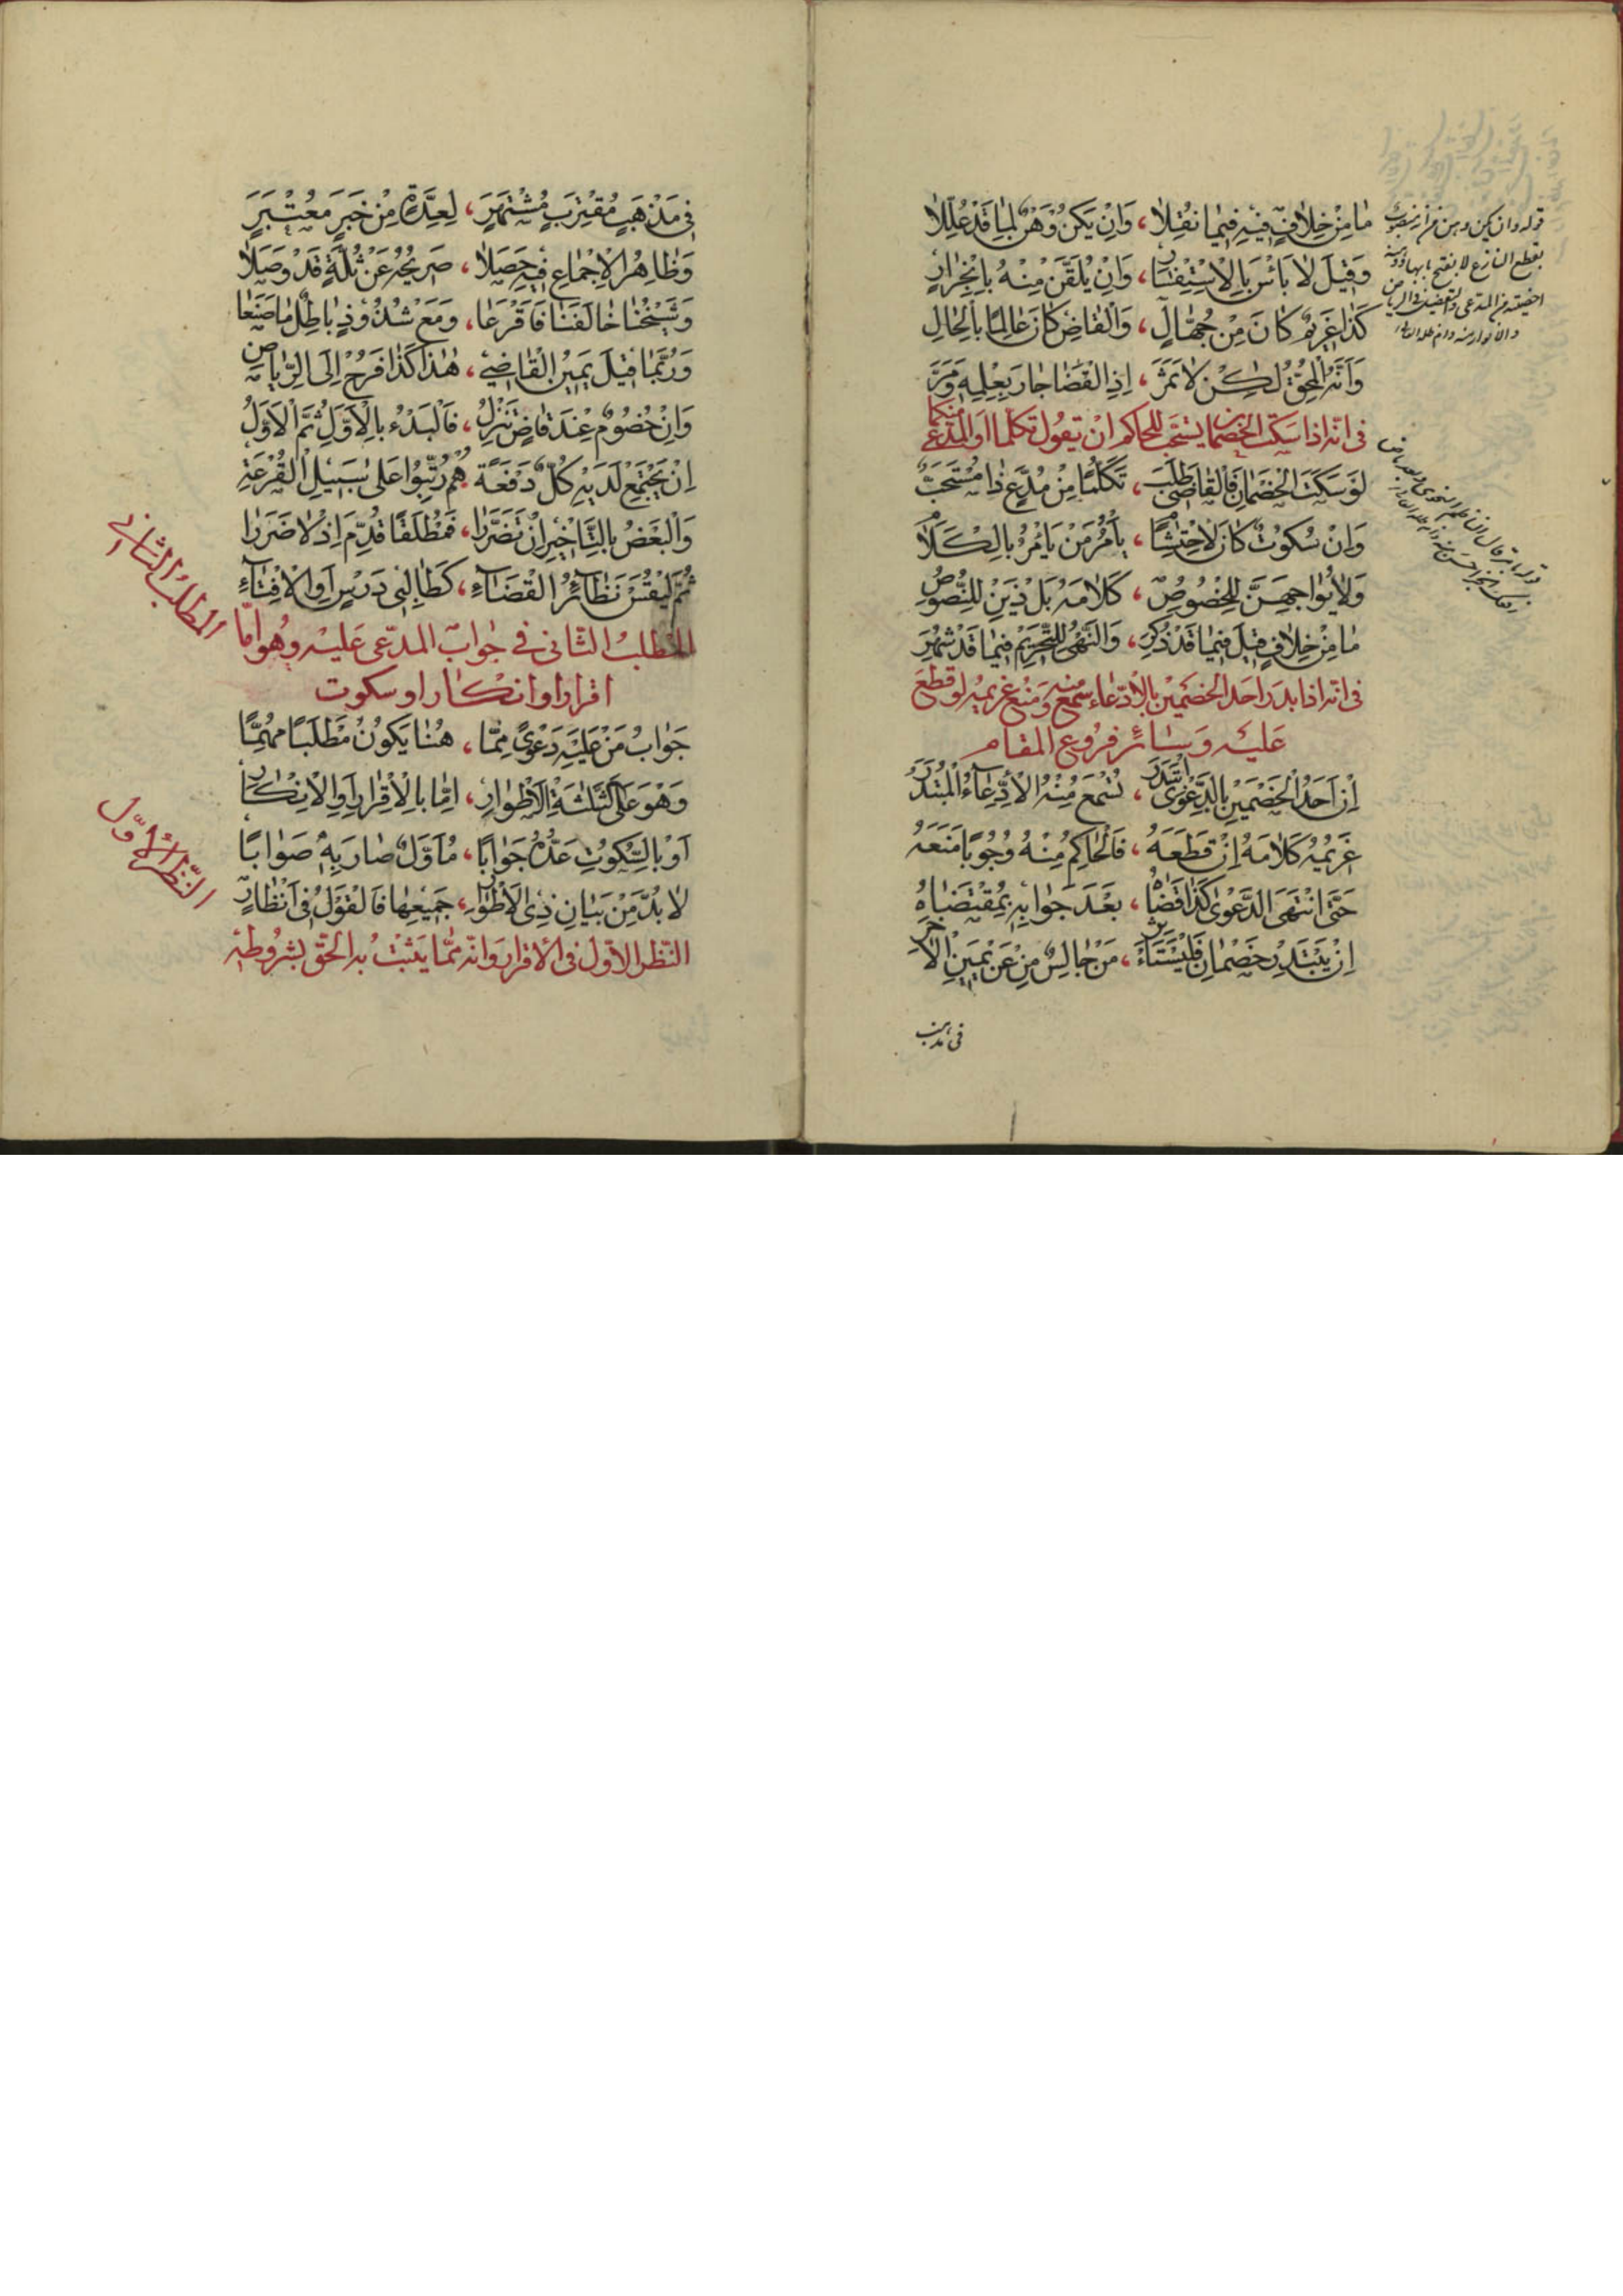 مٰا مِنْ خِلٰافٍ فيهِ فيمٰا نُقِلٰا ، وَاِنْ يَكُنْ وَهْنٌ لِمٰا قَدْ عُلِّلٰا
وَقيلَ لٰا بَأْسَ بِالْاِسْتِفْسٰارِ ، وَاِنْ يُلَقَّنْ مِنْهُ بِانْجِرٰارٍ
كَذٰا غَريمٌ كٰانَ مِنْ جُهّٰالٍ ، وَالْقٰاضِ كٰانَ عٰالِمًا بِالْحٰالِ
وَاَنَّهُ الْمُحِقُّ لٰكِنْ لٰا ثَمَرَ ، اِذِ الْقَضٰا جٰازَ بِعِلْمِهِ وَمَرَّ
فى انّه اذا سكت الخصمان يستحبّ للحاكم ان يقول تكلّما او المدّعى منكما
لَوْ سَكَتَ الْخَصْمٰانِ فَالْقٰاضى طَلَبَ ، تَكَلُّمًا مِنْ مُدَّعٍ ذٰا مُسْتَحَبٌّ
وَاِنْ سُكُوتٌ كٰانَ لِاحْتِشٰامٍ ، يَأْمُرُ مَنْ يَأْمُرُ بِالْكَلٰامِ
وَلٰا يُوٰاجِهَنَّ لِلْخُصُوصِ ، كَلٰامَهُ بَلْ ذَيْنِ لِلنُّصُوصِ
مٰا مِنْ خِلٰافٍ قيلَ فيمٰا قَدْ ذُكِرَ ، وَالنَّهْىُ لِلتَّحْريمِ فيمٰا قَدْ شُهِرَ
فى انّه اذا بدر احد الخصمين بالادّعاء سمع منه ومنع غريمه لو قطع
عليه وسائر فروع المقام
اِنْ اَحَدُ الْخَصْمَيْنِ بِالدَّعْوَى ابْتَدَرَ ، تُسْمَعُ مِنْهُ الْاِدِّعٰاءُ الْمُبْتَدَرُ
غَريمُهُ كَلٰامَهُ اِنْ قَطَعَهُ ، فَالْحٰاكِمُ مِنْهُ وُجُوبًا مَنَعَهُ
حَتَّى انْتَهَى الدَّعْوٰى كَذٰا قَضٰاهُ ، بَعْدَ جَوٰابِهِ بِمُقْتَضٰاهُ
اِنْ يَبْتَدِرْ خَصْمٰانِ فَلْيُسْتَأْثَرْ ، مَنْ جٰالِسٌ مِنْ عَنْ يَمينِ الْاٰخَرِ
فى مذهب
فى مَذْهَبٍ مُقْتَرِبٍ مُشْتَهِرٍ ، لِعِدَّةٍ مِنْ خَبَرٍ مُعْتَبَرٍ
وَظٰاهِرُ الْاِجْمٰاعِ فيهِ حَصَلٰا ، صَريحُهُ عَنْ ثُلَّةٍ قَدْ وَصَلٰا
وَشَيْخُنٰا خٰالَفَنٰا فَاَقْرَعٰا ، وَمَعْ شُذُوذٍ بٰاطِلٌ مٰا صَنَعٰا
وَرُبَّمٰا قيلَ يَمينُ الْقٰاضى ، هٰذٰا كَذٰا فَرُحْ اِلَى الرِّيٰاضِ
وَاِنْ خُصُومٌ عِنْدَ قٰاضٍ تَنْزِلُ ، فَالْبَدْءُ بِالْاَوَّلِ ثُمَّ الْاَوَّلُ
اِنْ يَجْتَمِعْ لَدَيْهِ كُلٌّ دَفْعَةً ، هُمْ رُتِّبُوا عَلٰى سَبيلِ الْقُرْعَةِ
وَالْبَعْضُ بِالتَّأْخيرِ اِنْ تَضَرَّرٰا ، فَمُطْلَقًا قُدِّمَ اِذْ لٰا ضَرَرٰا
ثُمَّ لْيُقَسْ نَظٰائِرُ الْقَضٰاءِ ، كَطٰالِبى دَرْسٍ اَوِ الْاِفْتٰاءِ
المطلب الثّانى فى جواب المدّعى عليه وهو امّا
اقرار او انكار او سكوت
جَوٰابُ مَنْ عَلَيْهِ دَعْوًى مِمّٰا ، هُنٰا يَكُونُ مَطْلَبًا مُهِمًّا
وَهْوَ عَلَى الثَّلٰثَةِ الْاَطْوٰارِ ، اِمّٰا بِالْاِقْرٰارِ اَوِ الْاِنْكٰارِ
اَوْ بِالسُّكُوتِ عَدُّهُ جَوٰابًا ، مُأَوَّلٌ صٰارَ بِهِ صَوٰابًا
لٰا بُدَّ مِنْ بَيٰانِ ذِى الْاَطْوٰارِ ، جَميعِهٰا فَالْقَوْلُ فى اَنْظٰارٍ
النّظر الاوّل فى الاقرار وانّه ممّا يثبت به الحقّ بشروطه
المطلب الثانى
النّظر الاوّل